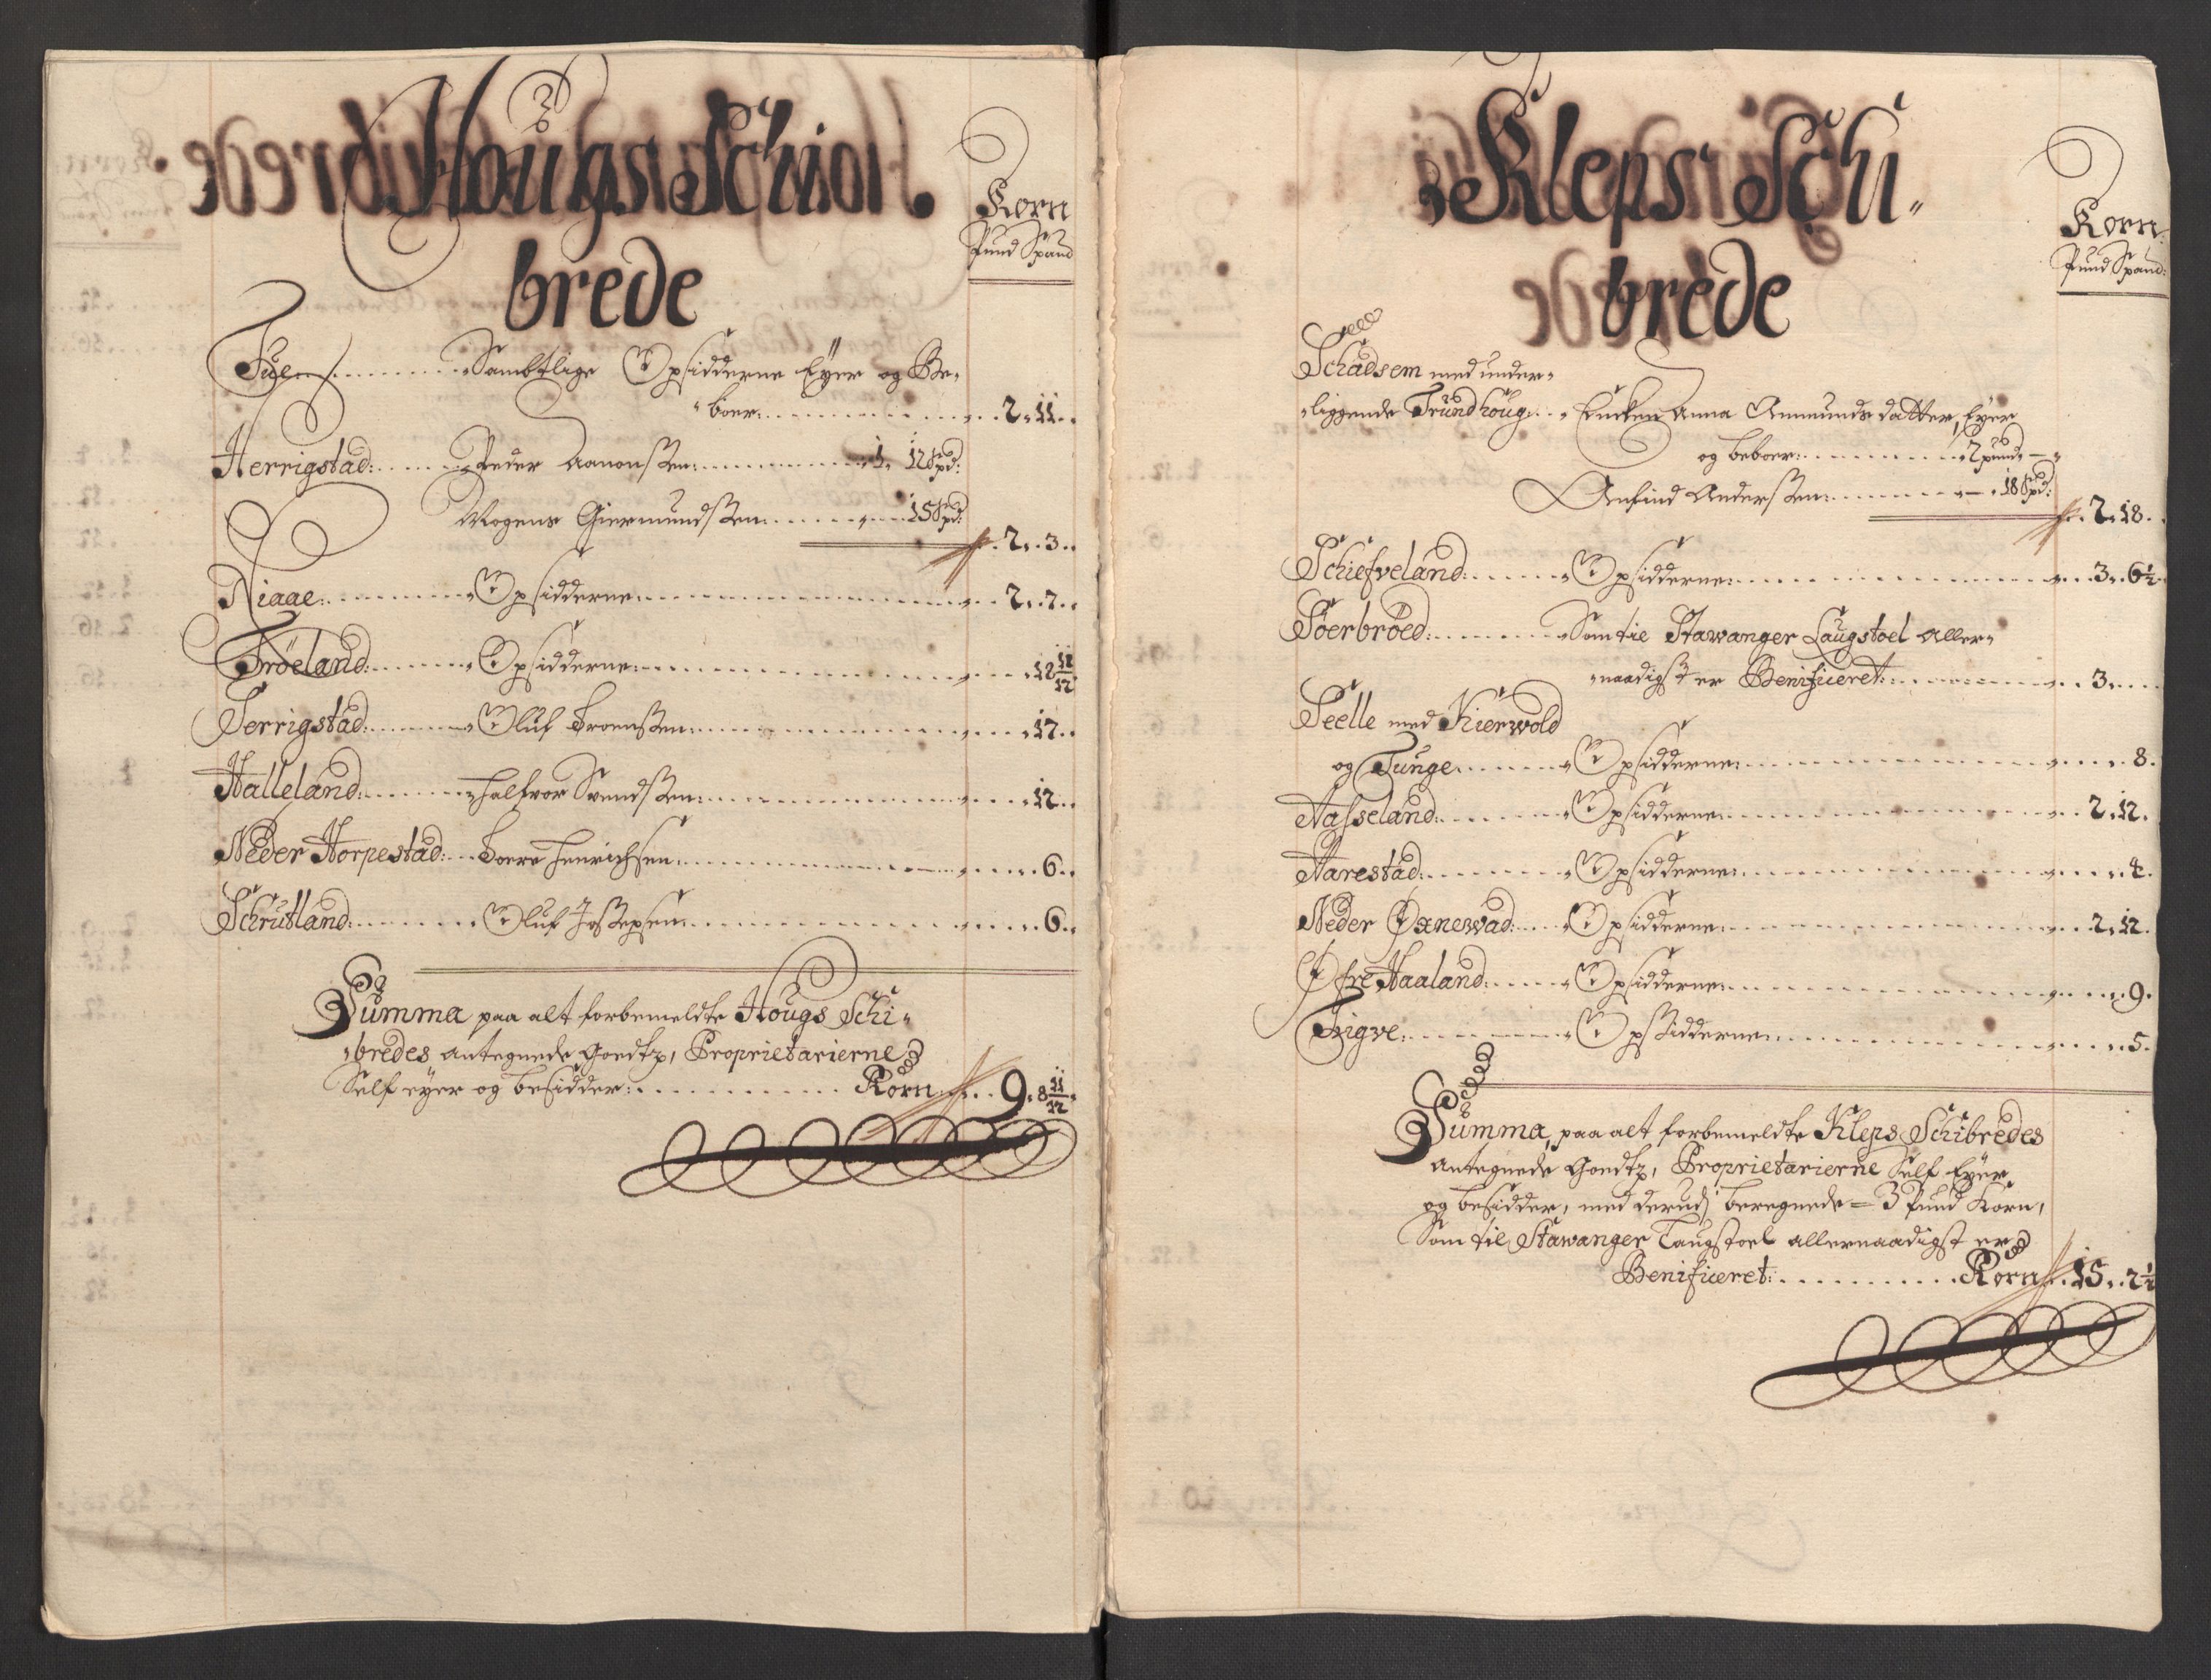 Hougs Schi
brede
Korn
Pund Spand
Tue Sambtlige Opsidderne Eyer og Be-
boer 2 11
Herrigstad: Peder Aanonssen 1. 12 Spd:
Mogens Giermundssen 15 Spd:
2. 3
Niaae Opsidderne 2. 7
Frøeland: Opsidderne 12 11/12
Serrigstad: Oluf Broenssen 17
Halleland: Halfvor Svendssen 12
Neder Horpestad: Torre Henrichsen 6
Schrutland: Oluf Jossepsen 6
Summa paa alt forbemeldte Hougs Schi-
bredes antegnede Goedtz, Proprietarierne
Self eyer og besidder: Korn 9. 8 11/12
Kleps Schi-
brede
Korn
Pund Spand:
Schadsem med under-
liggende Trundhoug Encken Anna Ammunds datter, Eyer
og beboer 2 pund —
Anfind Anderssen — 18 Spd:
2. 18
Schiefveland: Opsidderne 3. 6 1/2
Søerbrøed: Som til Stawanger Laugstoel Aller-
naadigst er Benificeret: 3.
Seelle med Kierwold
og Tunge Opsidderne 8.
Aasseland: Opsidderne 2. 12.
Aarestad: Opsidderne 4.
Neder Øxnewad: Opsidderne 2. 12.
Øfre Haaland: Opsidderne 9.
Tvigve: Opsidderne 5.
Summa, paa alt forbemeldte Kleps Schibredes
antegnede Goedtz, Proprietarierne Self Eyer
og besidder, med derudj beregnede = 3 Pund Korn,
Som til Stawanger Laugstoel allernaadigst er
Benificeret: Korn 15. 2 1/2